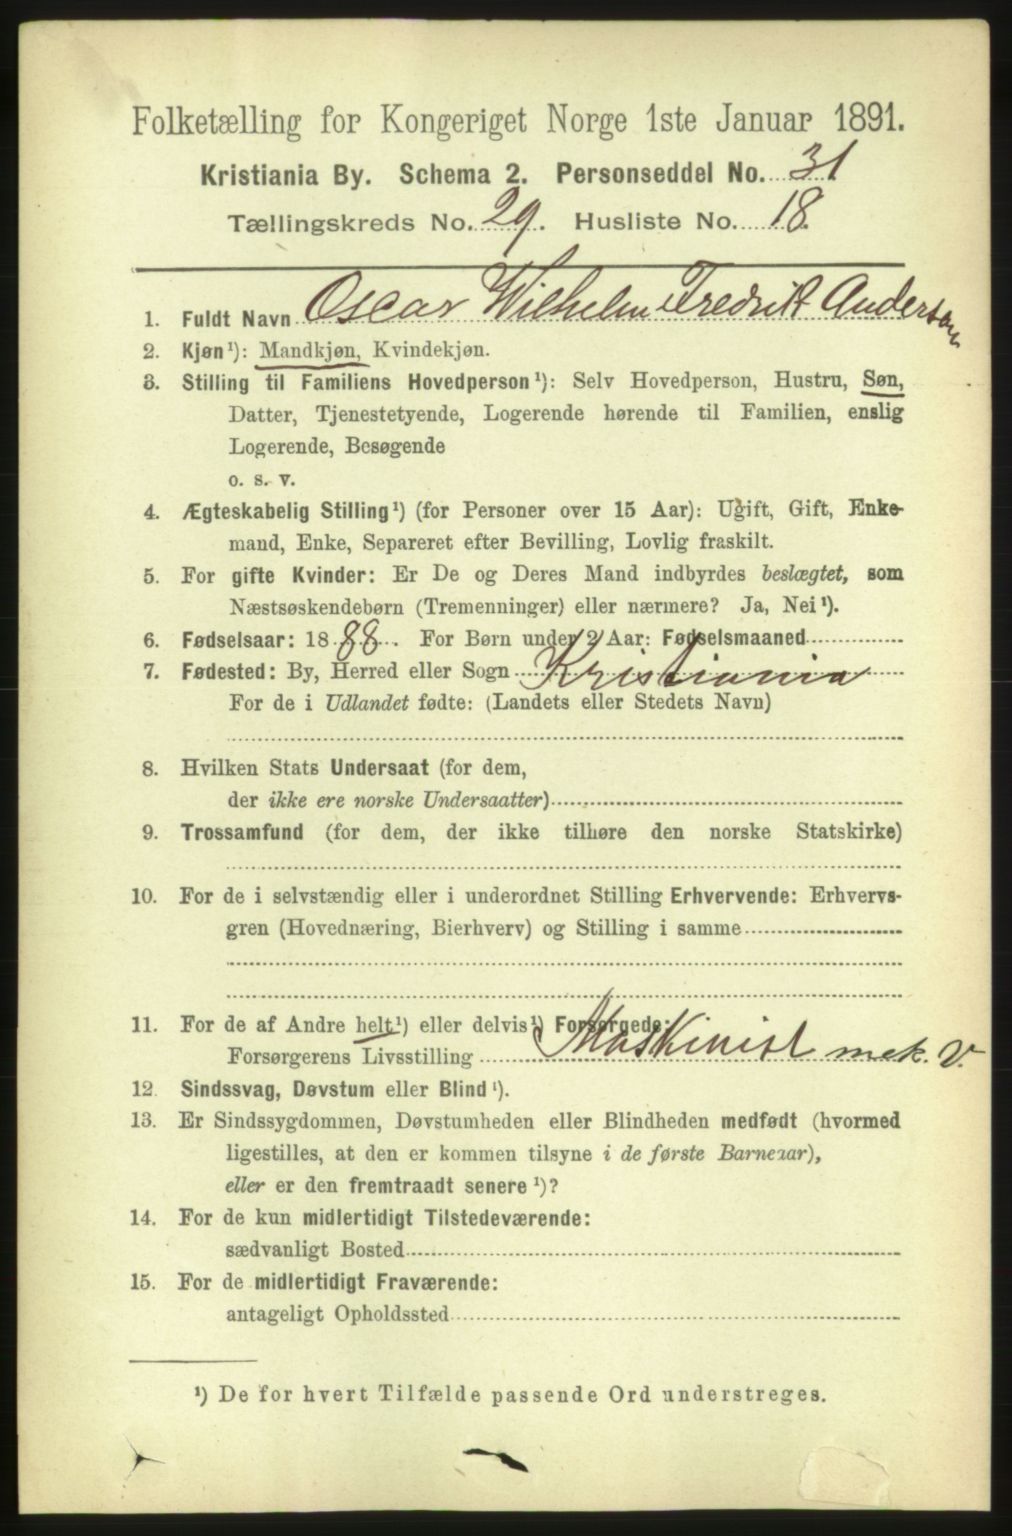 Folketælling for Kongeriget Norge 1ste Januar 1891.
Kristiania By. Schema 2. Personseddel No. 31
Tællingskreds No. 29. Husliste No. 18.
1. Fuldt Navn Oscar Wilhelm Fredrik Anderson
2. Kjøn ¹): Mandkjøn, Kvindekjøn.
3. Stilling til Familiens Hovedperson ¹): Selv Hovedperson, Hustru, Søn,
Datter, Tjenestetyende, Logerende hørende til Familien, enslig
Logerende, Besøgende
o. s. v.
4. Ægteskabelig Stilling ¹) (for Personer over 15 Aar): Ugift, Gift, Enke-
mand, Enke, Separeret efter Bevilling, Lovlig fraskilt.
5. For gifte Kvinder: Er De og Deres Mand indbyrdes beslægtet, som
Næstsøskendebørn (Tremenninger) eller nærmere? Ja, Nei ¹).
6. Fødselsaar: 1888. For Børn under 2 Aar: Fødselsmaaned
7. Fødested: By, Herred eller Sogn Kristiania
For de i Udlandet fødte: (Landets eller Stedets Navn)
8. Hvilken Stats Undersaat (for dem,
der ikke ere norske Undersaatter)
9. Trossamfund (for dem, der ikke tilhøre den norske Statskirke)
10. For de i selvstændig eller i underordnet Stilling Erhvervende: Erhvervs-
gren (Hovednæring, Bierhverv) og Stilling i samme
11. For de af Andre helt ¹) eller delvis ¹) Forsørgede:
Forsørgerens Livsstilling Maskinist mek. V.
12. Sindssvag, Døvstum eller Blind ¹).
13. Er Sindssygdommen, Døvstumheden eller Blindheden medfødt (hvormed
ligestilles, at den er kommen tilsyne i de første Barneaar),
eller er den fremtraadt senere ¹)?
14. For de kun midlertidigt Tilstedeværende:
sædvanligt Bosted
15. For de midlertidigt Fraværende:
antageligt Opholdssted
¹) De for hvert Tilfælde passende Ord understreges.